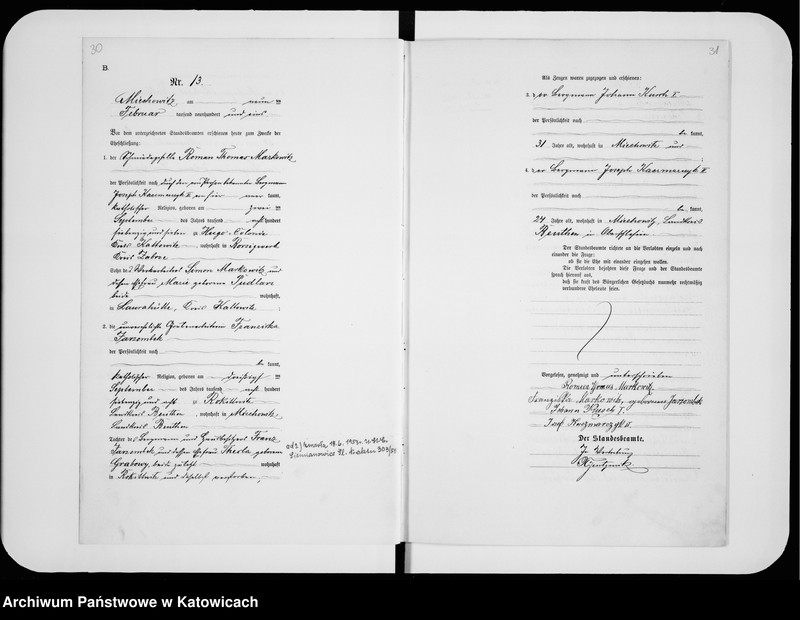 30
B.
Nr. 13.
Miechowitz am neun ten
Februar tausend neunhundert und eins.
Vor dem unterzeichneten Standesbeamten erschienen heute zum Zwecke der
Eheschließung:
1. der Schmiedegeselle Roman Thomas Markowitz
der Persönlichkeit nach durch den
Joseph Kaczmarczyk II kannt,
katholischer Religion, geboren am zwei ten
September des Jahres tausend acht hundert
siebenzig und sieben zu Hugo-Colonie
Kreis Kattowitz wohnhaft in Borsigwerk
Kreis Zabrze
Sohn des Simon Markowitz und
dessen Ehefrau Marie geborene
beide wohnhaft
in Laurahütte, Kreis Kattowitz ;
2. die unverehelichte Grubenarbeiterin Franziska
Jarzombek
der Persönlichkeit nach
be kannt,
katholischer Religion, geboren am dreißigsten
September des Jahres tausend acht hundert
siebenzig und acht zu Rokittnitz
Landkreis Beuthen wohnhaft in Miechowitz,
Landkreis Beuthen
Tochter des Bergmanns und Franz
Jarzombek und dessen Ehefrau Thecla geborene
Grabowy, beide zuletzt wohnhaft
in Rokittnitz und daselbst verstorben,
ad 2) zmarła
Siemianowice Śl.
31
Als Zeugen waren zugezogen und erschienen:
3. der Bergmann Johann I.
der Persönlichkeit nach
be kannt,
31 Jahre alt, wohnhaft in Miechowitz und
4. der Bergmann Joseph Kaczmarczyk II
der Persönlichkeit nach
be kannt,
24 Jahre alt, wohnhaft in Miechowitz, Landkreis
Beuthen in Oberschlesien.
Der Standesbeamte richtete an die Verlobten einzeln und nach
einander die Frage:
ob sie die Ehe mit einander eingehen wollen.
Die Verlobten bejahten diese Frage und der Standesbeamte
sprach hierauf aus,
daß sie kraft des Bürgerlichen Gesetzbuchs nunmehr rechtmäßig
verbundene Eheleute seien.
Vorgelesen, genehmigt und unterschrieben
Roman Tomas Markowitz
Franziska Markowitz, geborene Jarzombek
Johann I.
Josef Kaczmarczyk II.
Der Standesbeamte.
In Vertretung
Archiwum Państwowe w Katowicach